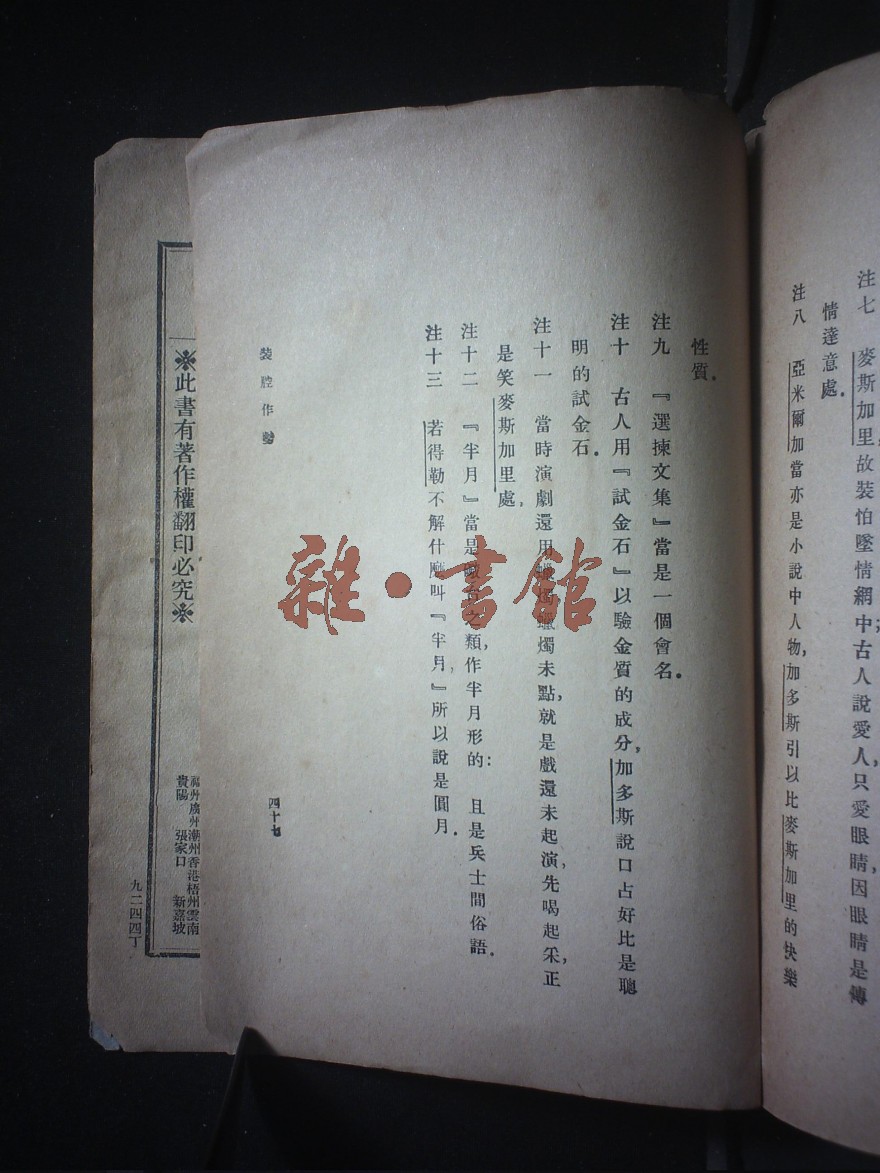 注七 麥斯加里故裝怕墜情網中古人說愛人只愛眼睛因眼睛是傳
情達意處.
注八 亞米爾加當亦是小說中人物,加多斯引以比麥斯加里的快樂
性質.
注九 『選揀文集』當是一個會名.
注十 古人用『試金石』以驗金質的成分,加多斯說口占好比是聰
明的試金石.
注十一 當時演劇還用蠟燭蠟燭未點,就是戲還未起演,先喝起采,正
是笑麥斯加里處,
注十二 『半月』當是 之類,作半月形的: 且是兵士間俗語.
注十三 若得勒不解什麼叫『半月,』所以說是圓月.
裝腔作勢
四十七
雜·書館
※此書有著作權翻印必究※
福州廣州潮州香港梧州雲南
貴陽 張家口 新嘉坡
九二四四丁